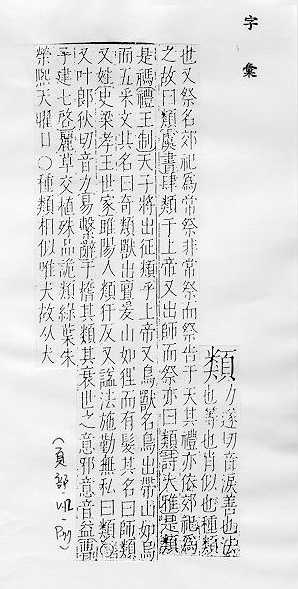 字彙
類 力遂切音淚善也法
也等也肖似也種類
也又祭名郊祀爲常祭非常祭而祭告于天其禮亦依郊祀爲
之故曰類虞書肆類于上帝又出師而祭亦曰類詩大雅是類
是禡禮王制天子將出征類乎上帝又鳥獸名鳥出帶山如烏
而五采文其名曰奇類獸出亶爰山如狸而有髮其名曰師類
又姓史梁孝王世家睢陽人類犴反又諡法施勤無私曰類〇
又叶郎狄切音力易繫辭于稽其類其衰世之意邪意音益曹
子建七啓麗草交植殊品詭類綠葉朱
榮熙天曜日〇種類相似唯犬故从犬
(頁部